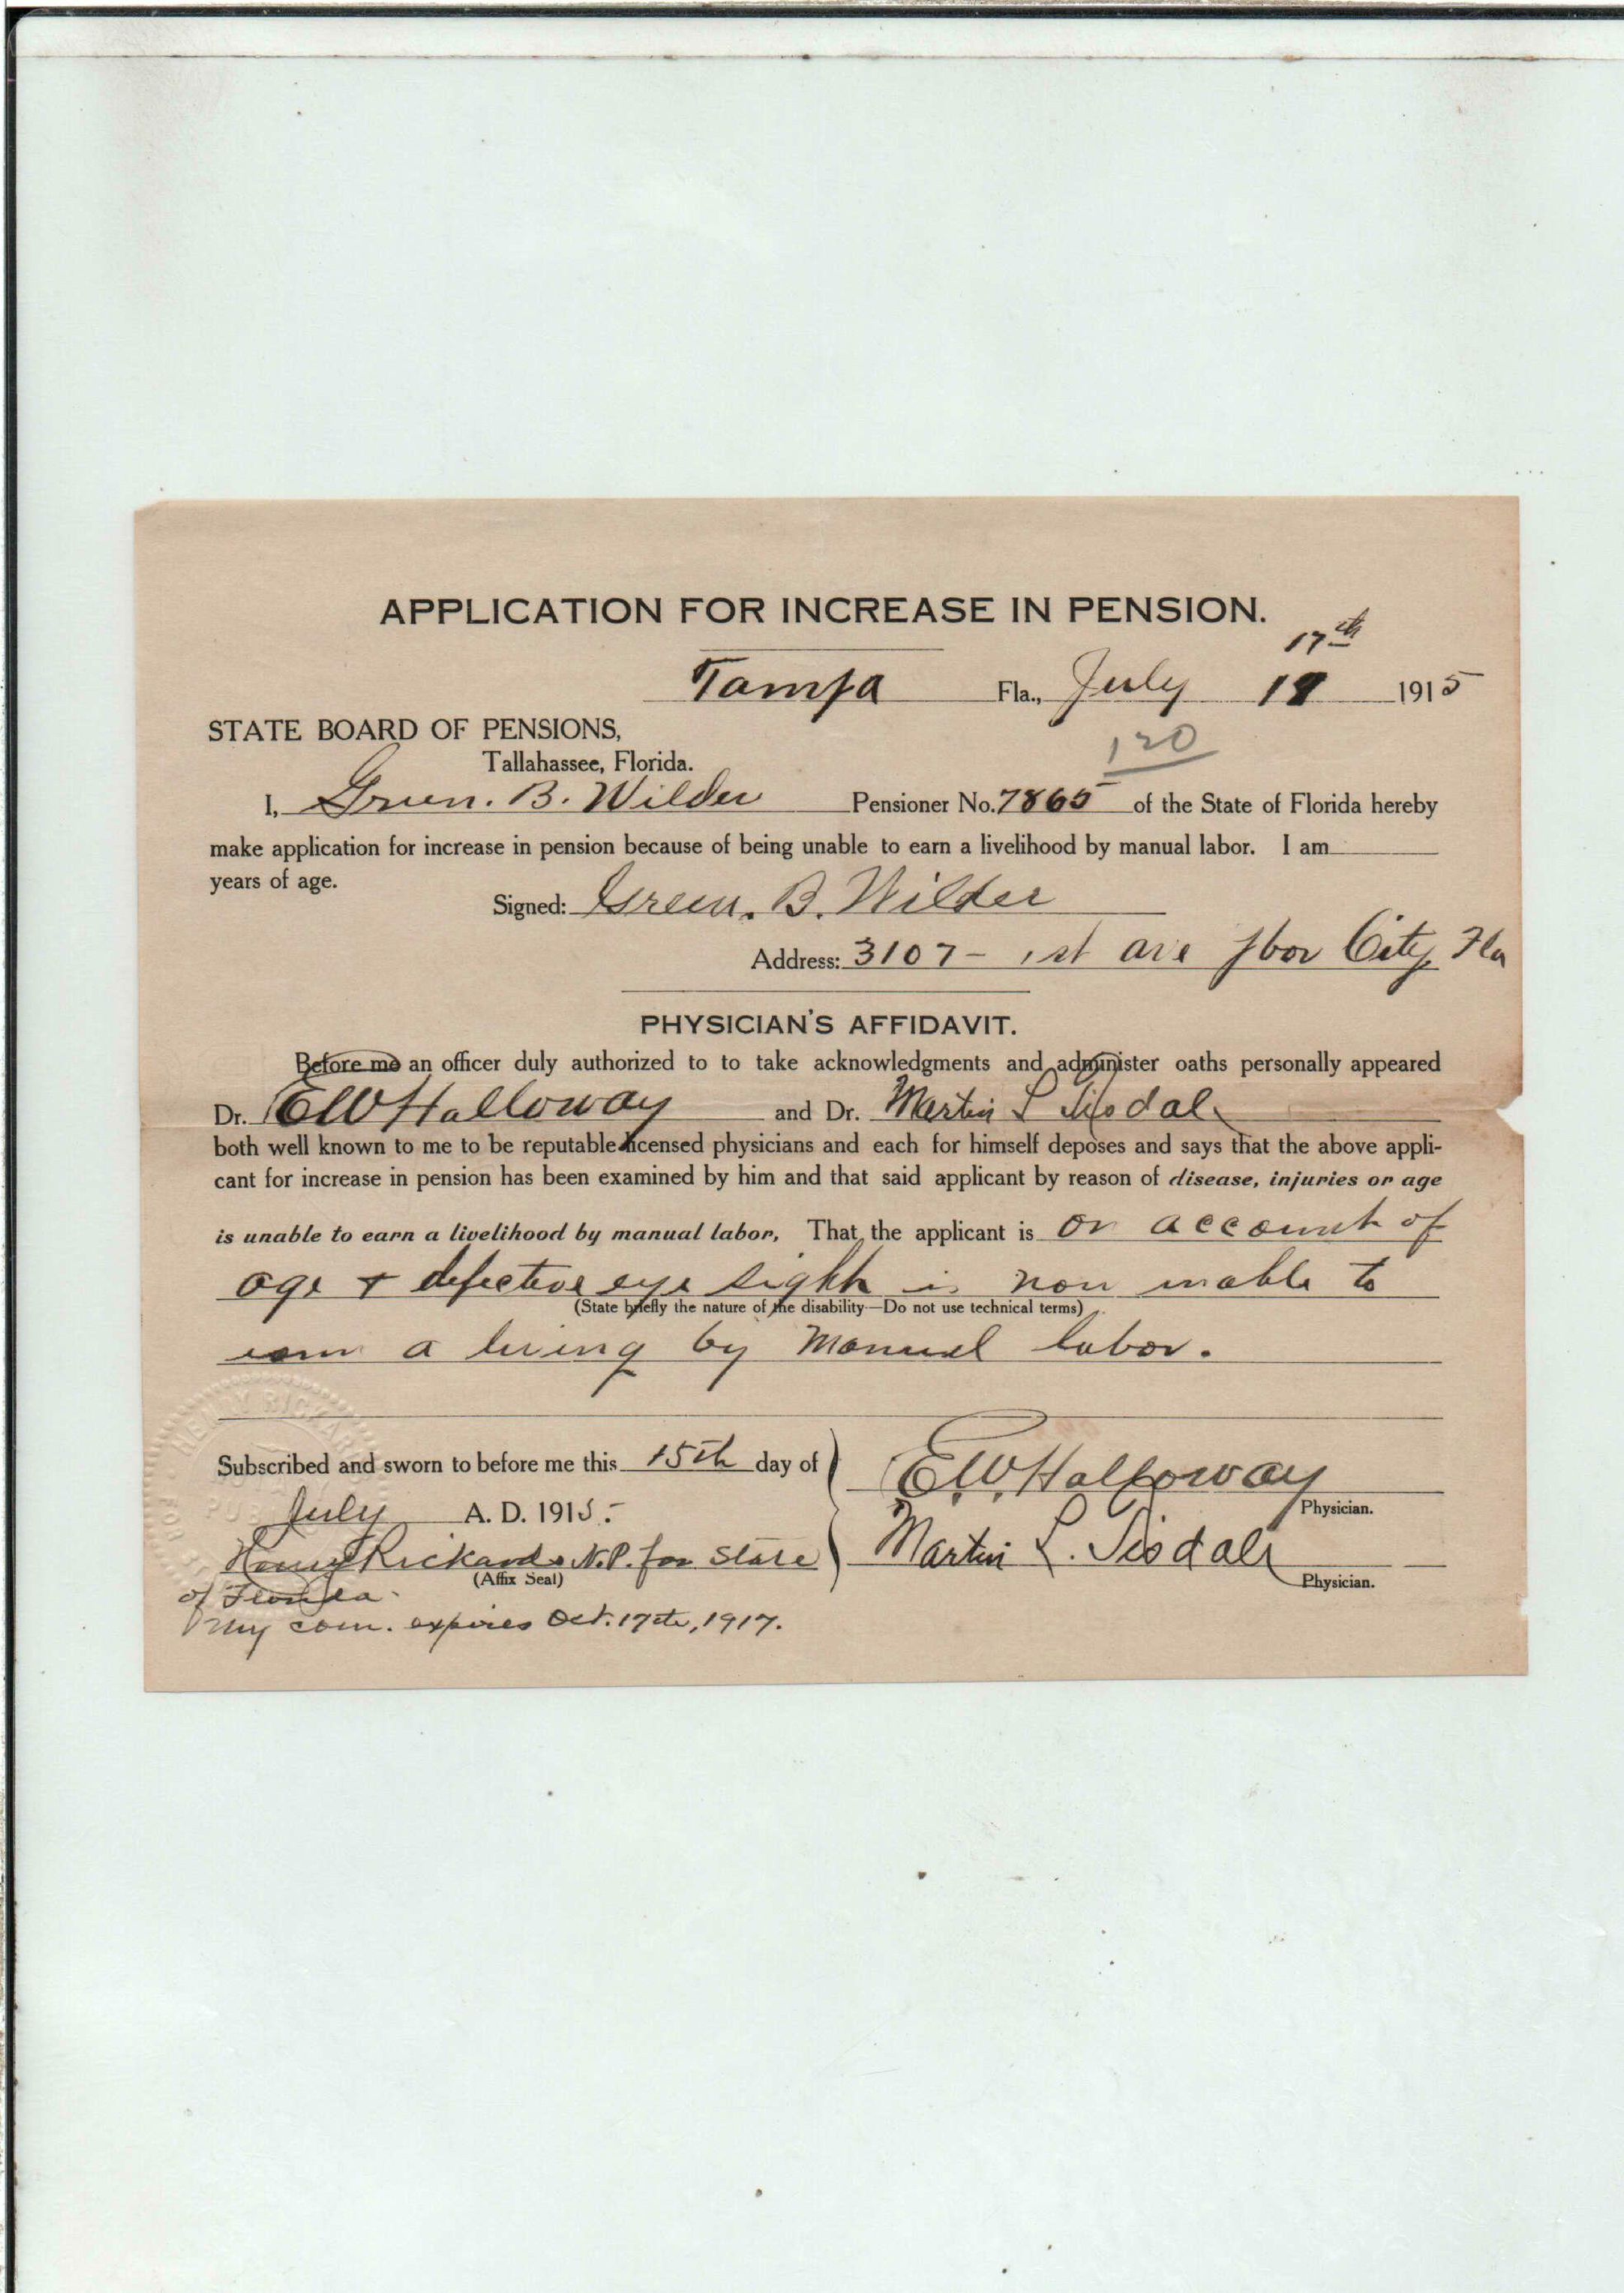 APPLICATION FOR INCREASE IN PENSION.
17th
Tampa Fla., July 19 1915
STATE BOARD OF PENSIONS,
120
Tallahassee, Florida.
I, Green. B. Wilder Pensioner No. 7865 of the State of Florida hereby
make application for increase in pension because of being unable to earn a livelihood by manual labor. I am
years of age.
Signed: Green. B. Wilder
Address: 3107 - 1st ave Ybor City, Fla
PHYSICIAN'S AFFIDAVIT.
Before me an officer duly authorized to to take acknowledgments and administer oaths personally appeared
Dr. E W Halloway and Dr. Martin L Tisdale
both well known to me to be reputable licensed physicians and each for himself deposes and says that the above appli-
cant for increase in pension has been examined by him and that said applicant by reason of disease, injuries or age
is unable to earn a livelihood by manual labor, That, the applicant is on account of
age + defective eye sight is now unable to
(State briefly the nature of the disability—Do not use technical terms)
earn a living by Manual labor.
HENRY RICKARDS
PUBLIC
Subscribed and sworn to before me this 15th day of
July A. D. 1915.-
E. W. Halloway
Physician.
Henry Rickards N.P. for State
(Affix Seal)
Martin L. Tisdale
Physician.
of Florida.
My com. expires Oct. 17th, 1917.